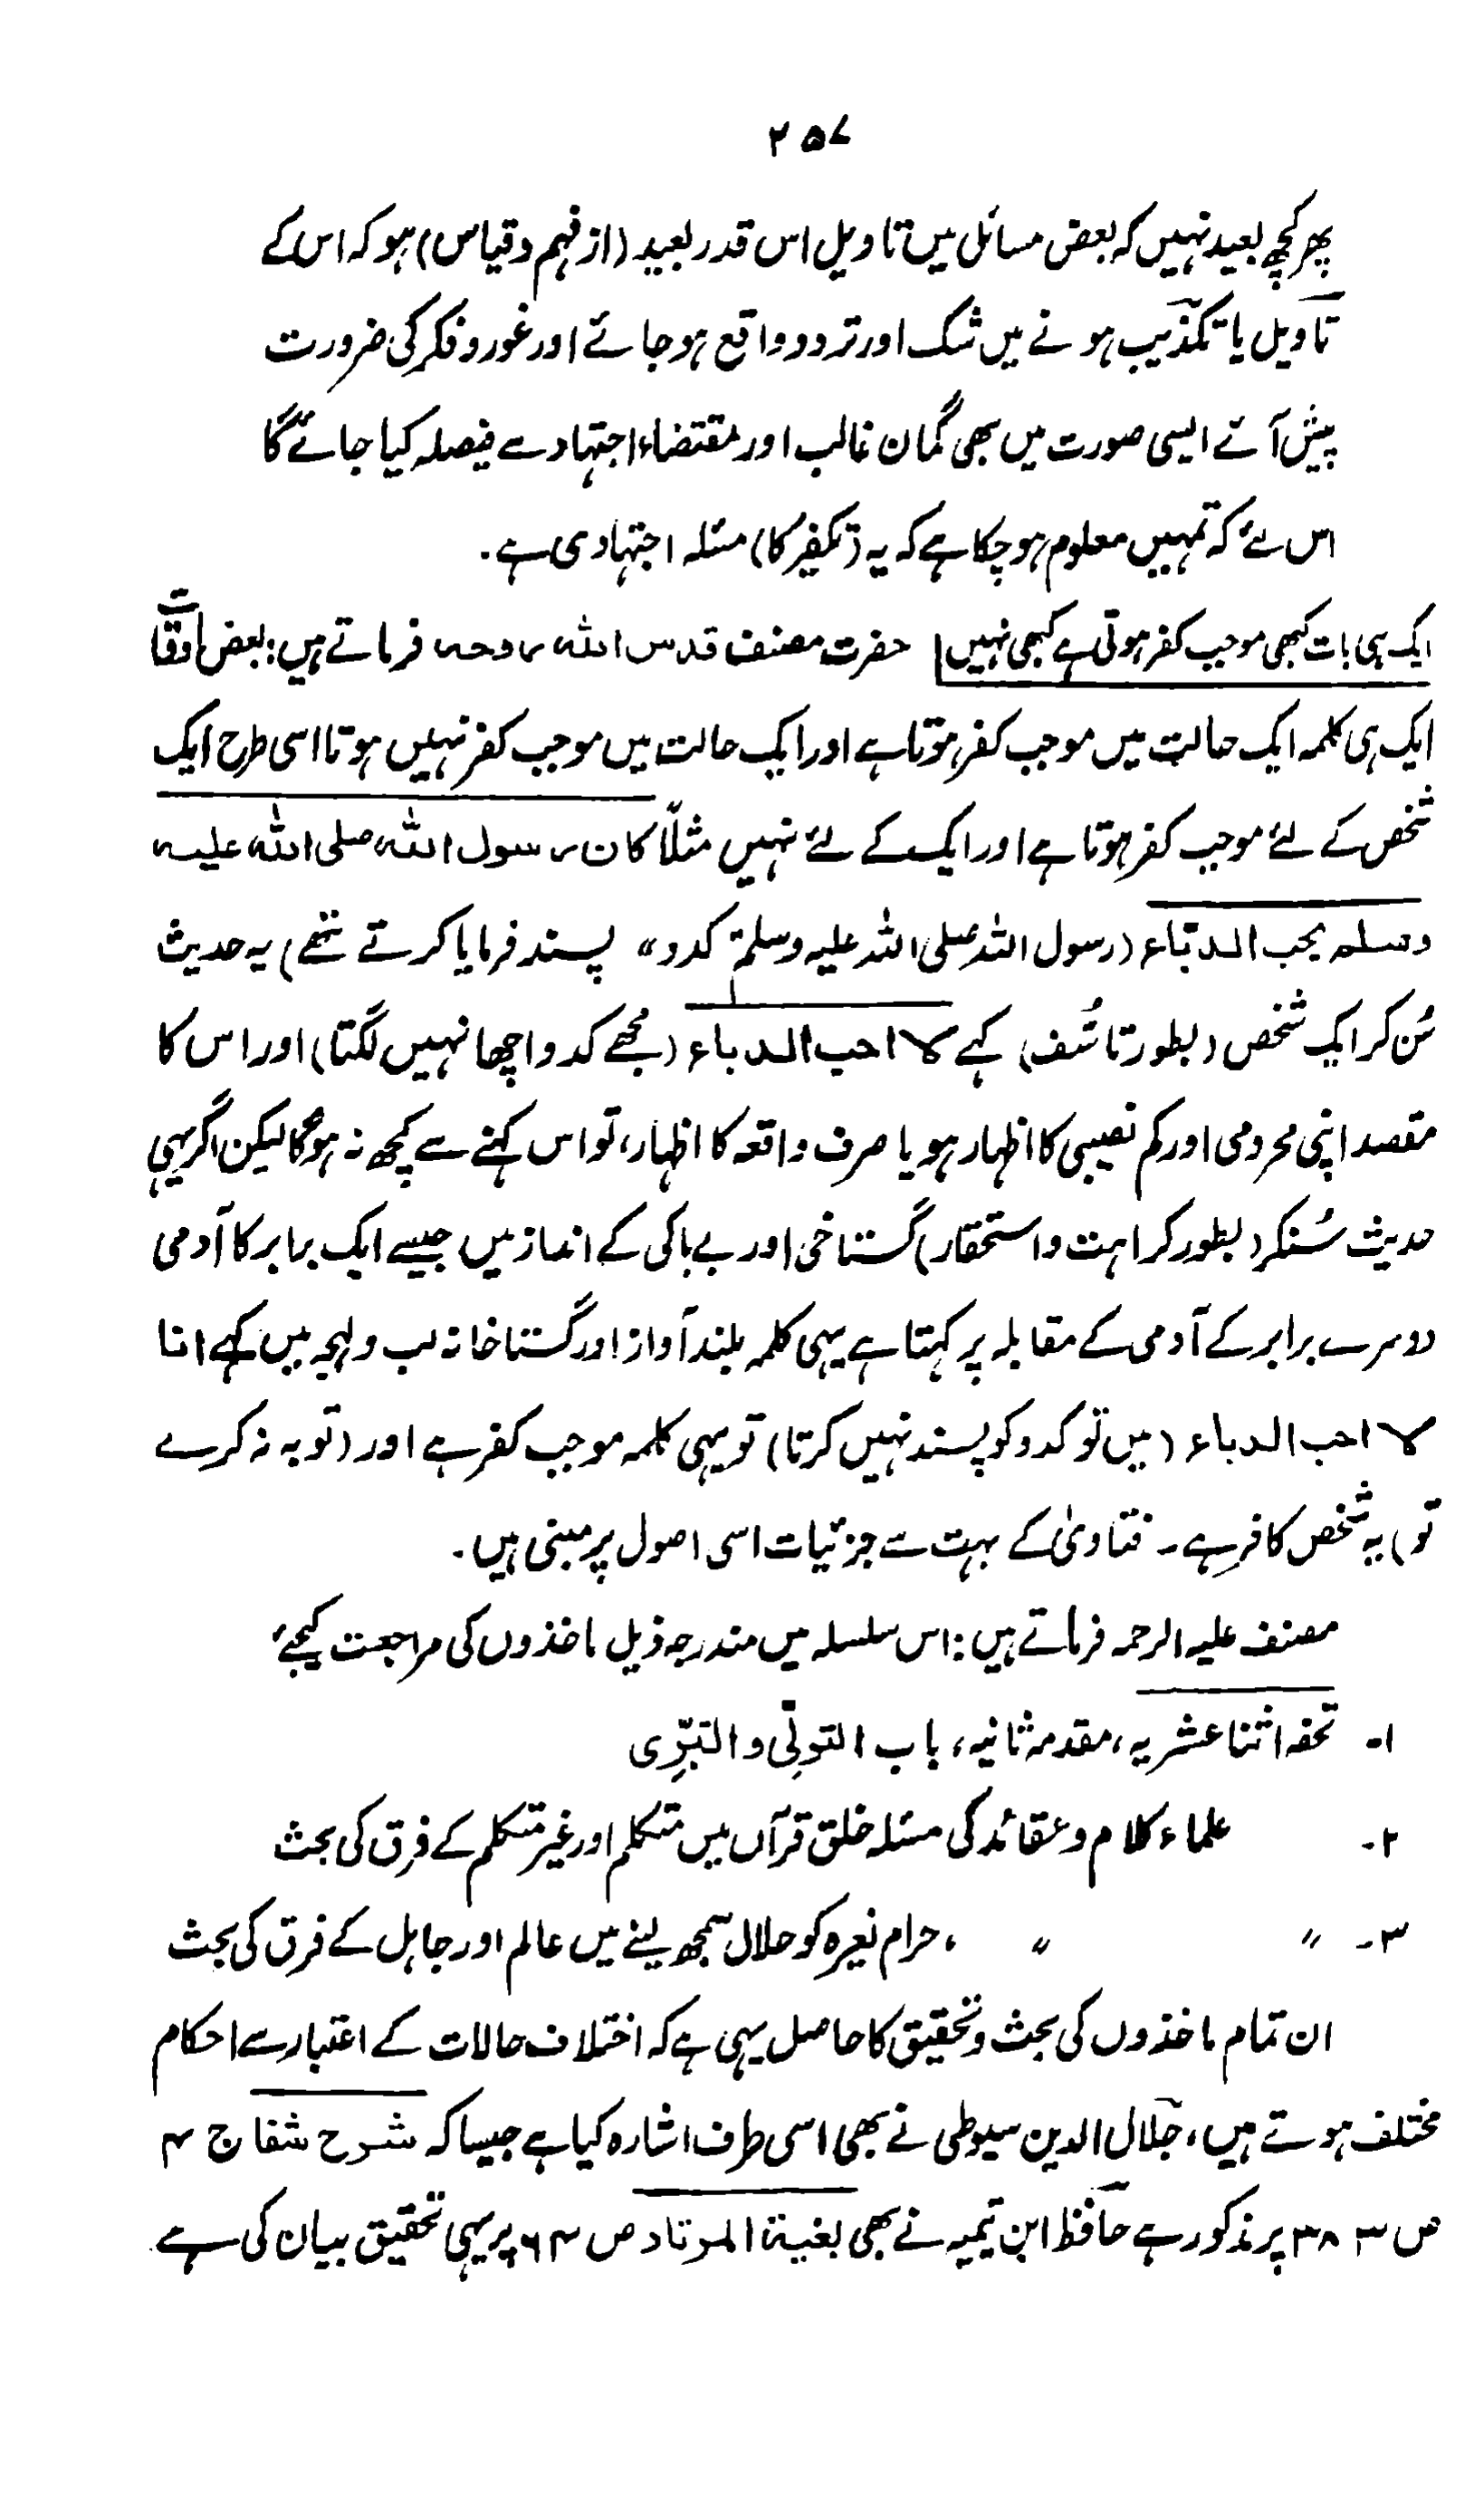 ۲۵۷
پھر کچھ بعید نہیں کہ بعض مسائل میں تاویل اس قدر بعید (از فہم وقیاس) ہو کہ اس کے
تاویل یا تکذیب ہونے میں شک اور تردد واقع ہوجائے اور غور وفکر کی ضرورت
پیش آئے ایسی صورت میں بھی گمان غالب اور مقتضاء اجتہاد سے فیصلہ کیا جائے گا
اس لئے کہ تمہیں معلوم ہوچکا ہے کہ یہ (تکفیر کا) مسئلہ اجتہادی ہے۔
ایک ہی بات کبھی موجب کفر ہوتی ہے کبھی نہیں حضرت مصنف قدس اللہ روحہ فرماتے ہیں: بعض اوقات
ایک ہی کلمہ ایک حالت میں موجب کفر ہوتا ہے اور ایک حالت میں موجب کفر نہیں ہوتا اسی طرح ایک
شخص کے لئے موجب کفر ہوتا ہے اور ایک کے لئے نہیں مثلاً کان رسول اللہ صلی اللہ علیہ
وسلم یحب الدباء (رسول اللہ صلی اللہ علیہ وسلم "کدو" پسند فرمایا کرتے تھے) یہ حدیث
سُن کر ایک شخص (بطور تاسُف) کہے لا احب الدباء (مجھے کدو اچھا نہیں لگتا) اور اس کا
مقصد اپنی محرومی اور کم نصیبی کا اظہار ہو یا صرف واقعہ کا اظہار، تو اس کہنے سے کچھ نہ ہوگا لیکن اگر یہی
حدیث سُنکر (بطور کراہت واستحقار) گستاخی اور بے باکی کے انداز میں جیسے ایک برابر کا آدمی
دوسرے برابر کے آدمی کے مقابلہ پر کہتا ہے یہی کلمہ بلند آواز اور گستاخانہ لب ولہجہ میں کہے انا
لا احب الدباء (میں تو کدو کو پسند نہیں کرتا) تو یہی کلمہ موجب کفر ہے اور (توبہ نہ کرے
تو) یہ شخص کافر ہے۔ فتاویٰ کے بہت سے جزئیات اسی اصول پر مبنی ہیں۔
مصنف علیہ الرحمہ فرماتے ہیں: اس سلسلہ میں مندرجہ ذیل ماخذوں کی مراجعت کیجئے
۱۔ تحفہ اثنا عشریہ، مقدمہ ثانیہ، باب التولّی والتبرّی
۲۔ علماء کلام وعقائد کی مسئلہ خلق قرآں میں متکلم اور غیر متکلم کے فرق کی بحث
۳۔ " " ، حرام لغیرہ کو حلال سمجھ لینے میں عالم اور جاہل کے فرق کی بحث
ان تمام ماخذوں کی بحث وتحقیق کا حاصل یہی ہے کہ اختلاف حالات کے اعتبار سے احکام
مختلف ہوتے ہیں، جلال الدین سیوطی نے بھی اسی طرف اشارہ کیا ہے جیسا کہ شرح شفا ج ۴
ص ۳۸۳ پر مذکور ہے حافظ ابن تیمیہ نے بھی بغیۃ المرتاد ص ۶۴ پر یہی تحقیق بیان کی ہے